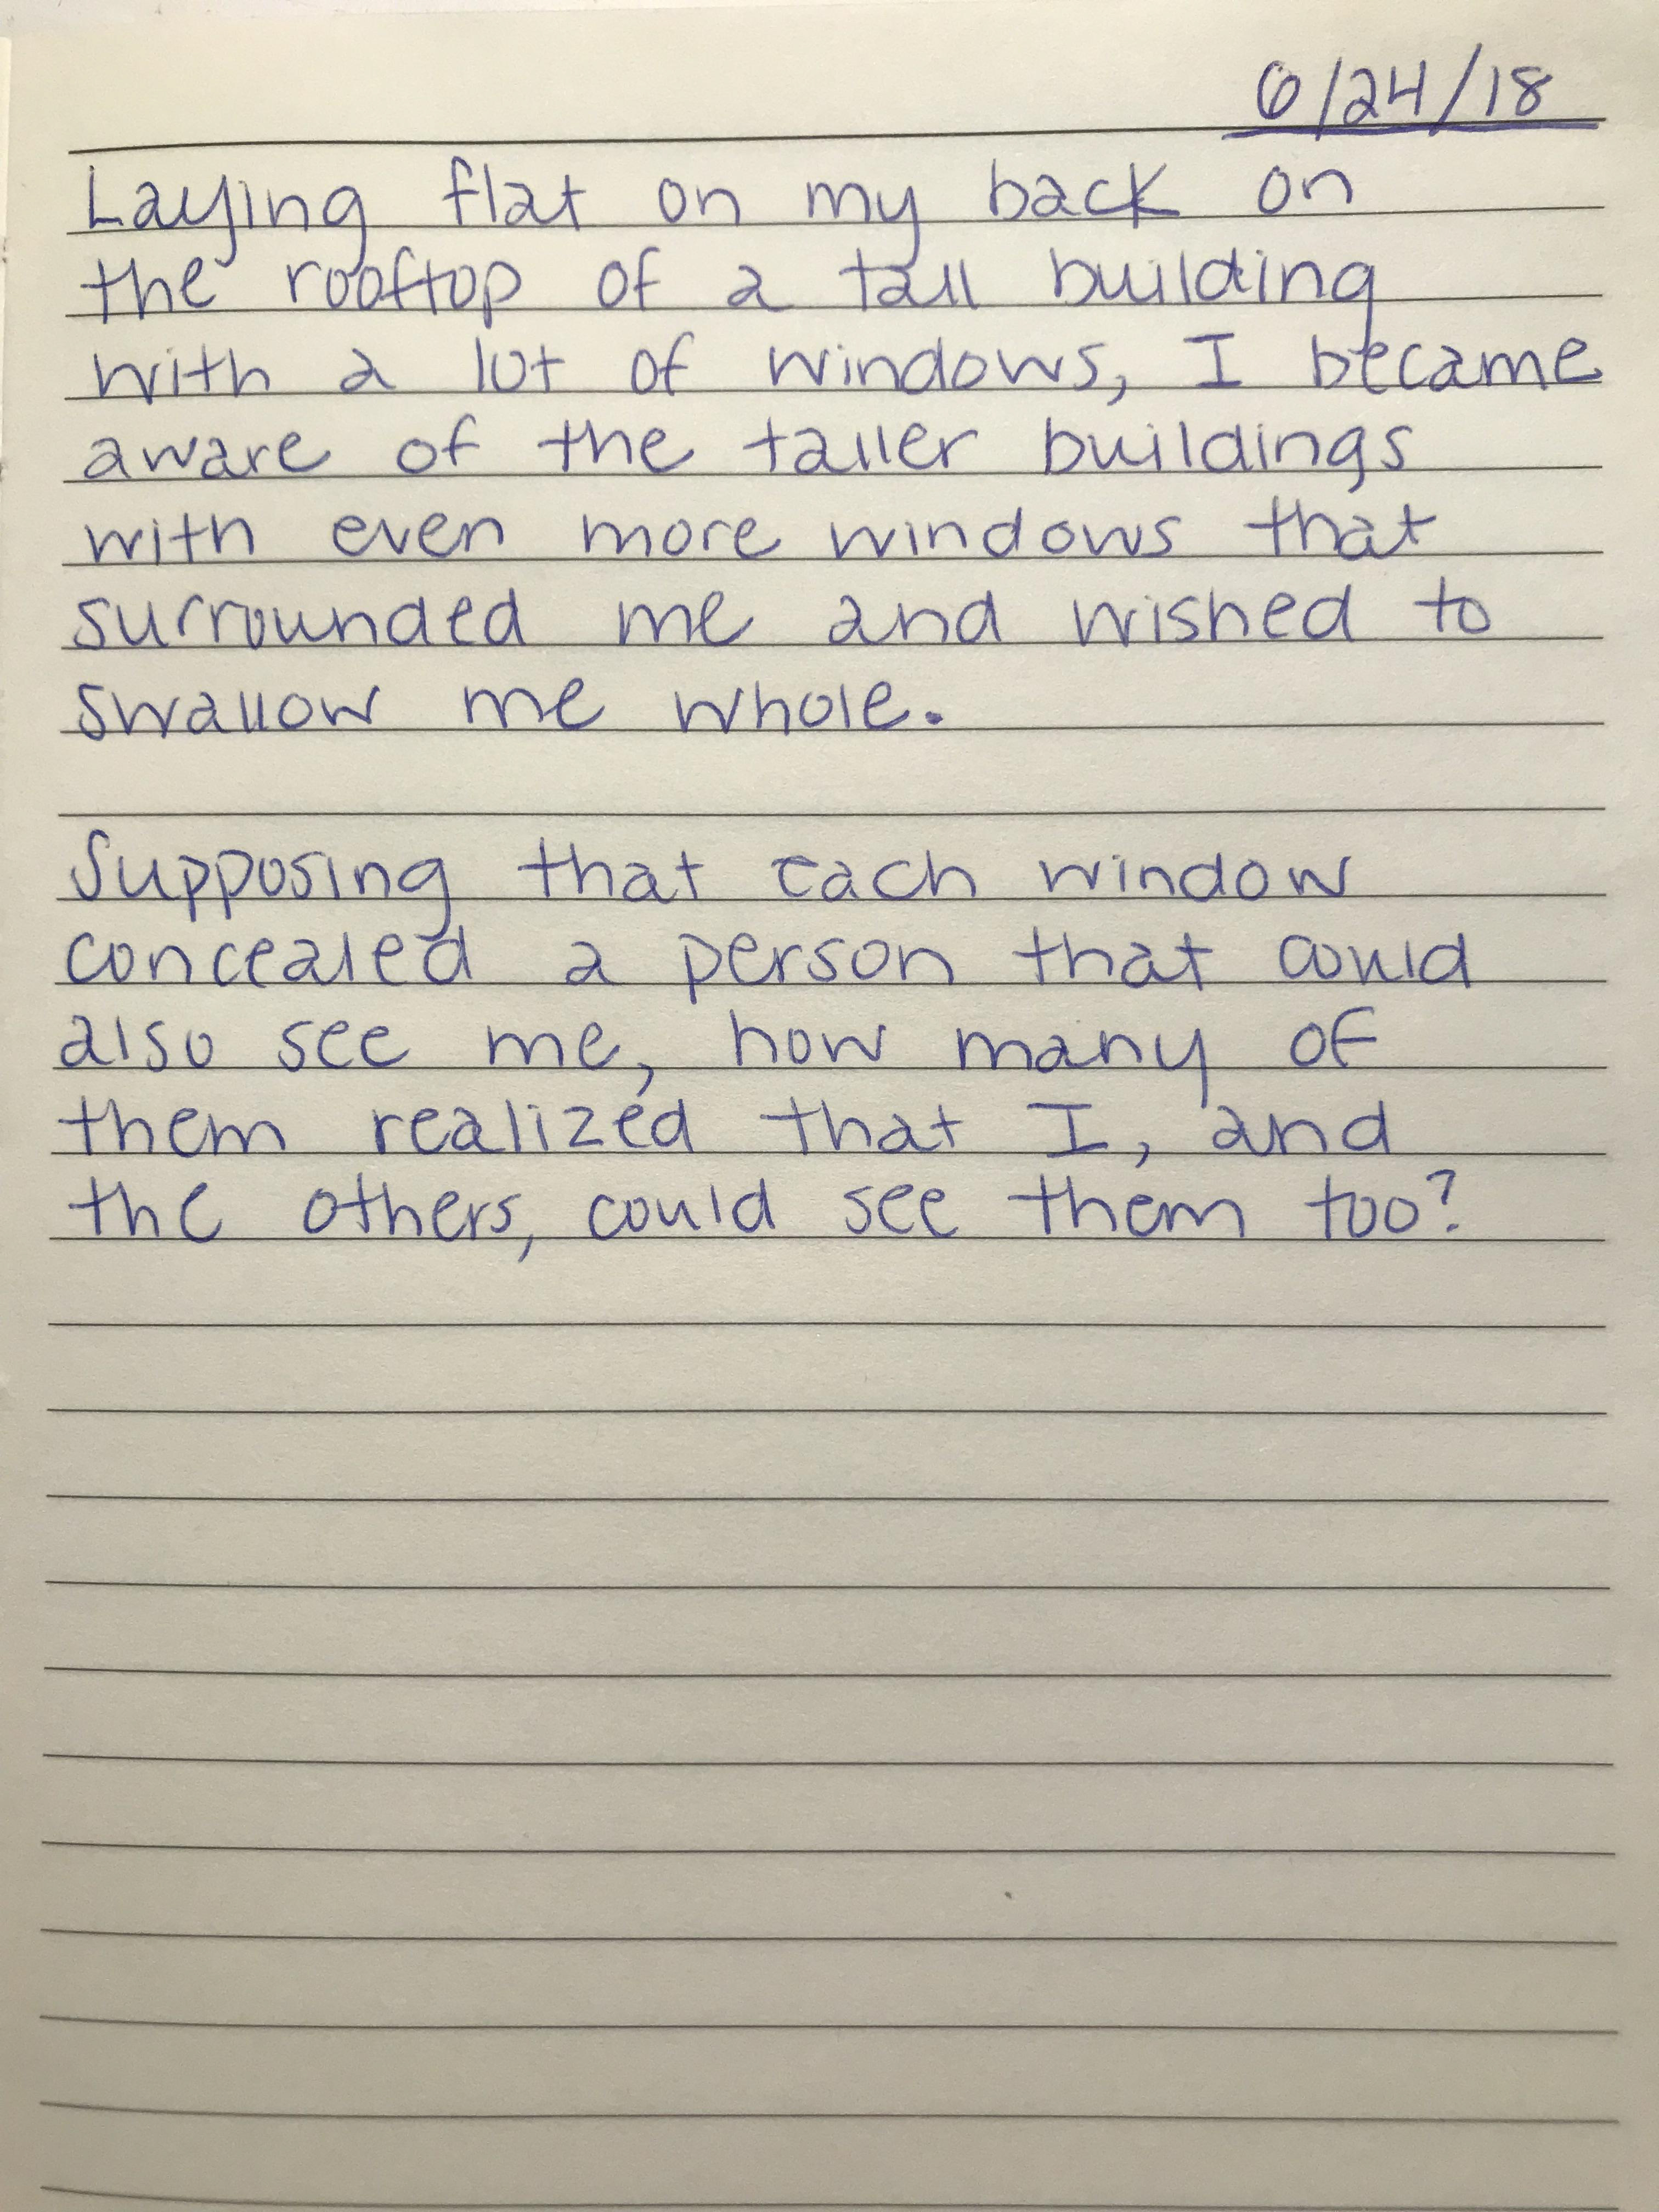 6/24/18
Laying flat on my back on
the rooftop of a tall building
with a lot of windows, I became
aware of the taller buildings
with even more windows that
surrounded me and wished to
swallow me whole.
Supposing that each window
concealed a person that could
also see me, how many of
them realized that I, and
the others, could see them too?